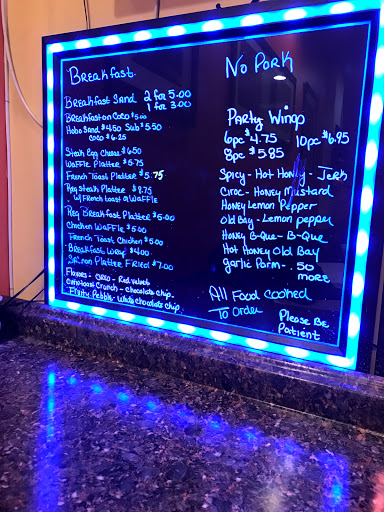 Breakfast
Breakfast Sand 2 for 5.00
1 for 3.00
Breakfast on Coco $5.00
Hobo Sand $4.50 Sub $5.50
Coco $6.25
Steak Egg Cheese $6.50
Waffle Platter $5.75
French Toast Platter $5.75
Reg Steak Platter $8.75
w/ French toast or Waffle
Reg Breakfast Platter $5.00
Chicken Waffle $5.00
French Toast Chicken $5.00
Breakfast Wrap $4.00
Salmon Platter Fried $7.00
Flavors - Oreo - Red velvet
Cinn toast Crunch - chocolate chip
Fruity Pebble - White chocolate chip
No Pork
Party Wings
6pc $4.75 10pc $6.95
8pc $5.85
Spicy - Hot Honey - Jerk
Ciroc - Honey Mustard
Honey Lemon Pepper
Old Bay - Lemon pepper
Honey B-Que - B-Que
Hot Honey Old Bay
garlic Parm - .50
more
All Food cooked
To Order
Please Be
Patient